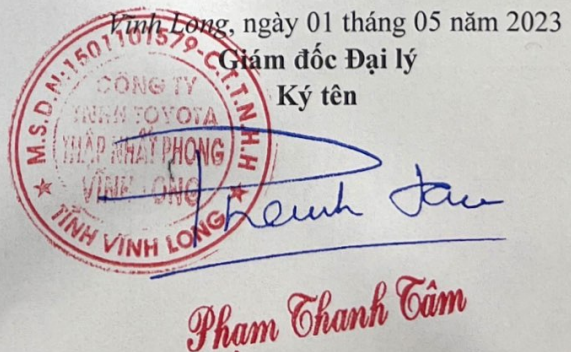 Vĩnh Long, ngày 01 tháng 05 năm 2023
Giám đốc Đại lý
Ký tên
M.S.D.N:1501101579-C.T.T.N.H.H
CÔNG TY
TNHH TOYOTA
THẬP NHẤT PHONG
VĨNH LONG
TỈNH VĨNH LONG
Thanh Tam
Phạm Thanh Tâm